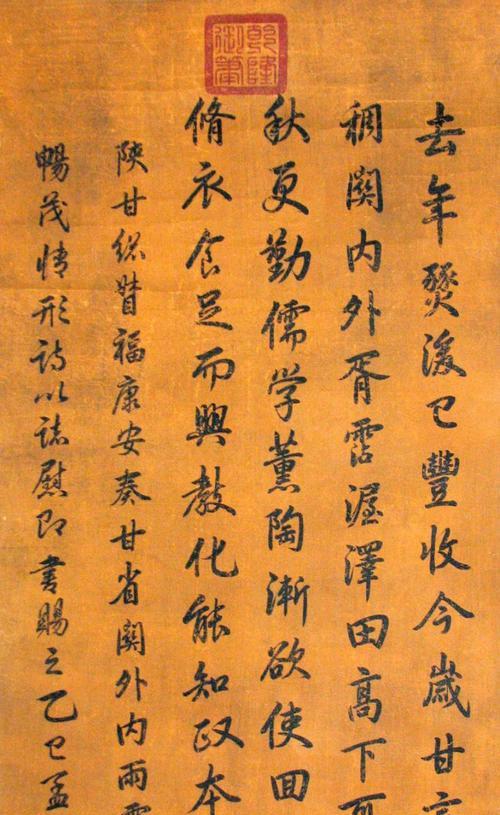 乾隆御筆
去年燹後已豐收今歲甘
稠關內外胥霑渥澤田高下
秋更勤儒学薰陶漸欲使回
脩衣食足而興教化能知政本
陝甘總督福康安奏甘省關外內雨
暢茂情形詩以誌慰即書賜之乙巳孟